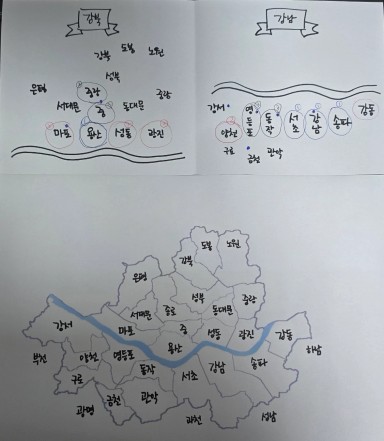 강북
강북 도봉 노원
성북
은평 중랑 중랑
서대문 중 동대문
마포 용산 성동 광진
강남
강서 영등포 동작 서초 강남 송파 강동
양천
구로 금천 관악
도봉 노원
강북
은평
성북 중랑
서대문 종로 동대문
강서 마포 중 성동 광진 강동
용산 하남
부천 양천 영등포 강남 송파
동작 서초
구로
금천 관악
광명 과천 성남